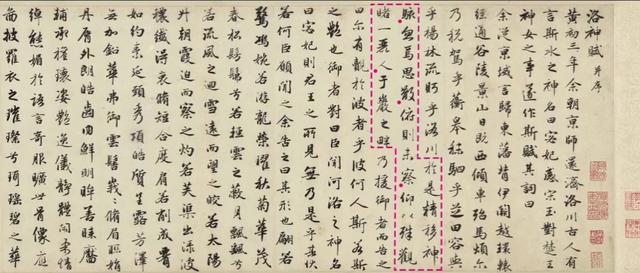 洛神賦 并序
黃初三年余朝京師還濟洛川古人有
言斯水之神名曰宓妃感宋玉對楚王
神女之事遂作斯賦其詞曰
余從京域言歸東藩背伊闕越轘轅
經通谷陵景山日既西傾車殆馬煩尔
乃稅駕乎蘅皋秣駟乎芝田容與
乎楊林流眄乎洛川於是精移神
駭忽焉思散俯則未察仰以殊觀
睹一麗人于巖之畔乃援御者而告之
曰尔有覿於彼者乎彼何人斯若斯
之艷也御者對曰臣聞河洛之神名
曰宓妃則君王之所見無乃是乎其狀
若何臣願聞之余告之曰其形也翩若
驚鴻婉若游龍榮曜秋菊華茂
春松髣髴兮若輕雲之蔽月飄飄兮
若流風之迴雪遠而望之皎若太陽
升朝霞迫而察之灼若芙蕖出淥波
襛纖得衷脩短合度肩若削成腰
如約素延頸秀項皓質呈露芳澤
無加鉛華弗御雲髻峩峩脩眉聯娟
丹脣外朗皓齒內鮮明眸善睞靨
輔承權瓌姿艷逸儀靜體閑柔情
綽態媚於語言奇服曠世骨像應
圖披羅衣之璀璨兮珥瑤碧之華